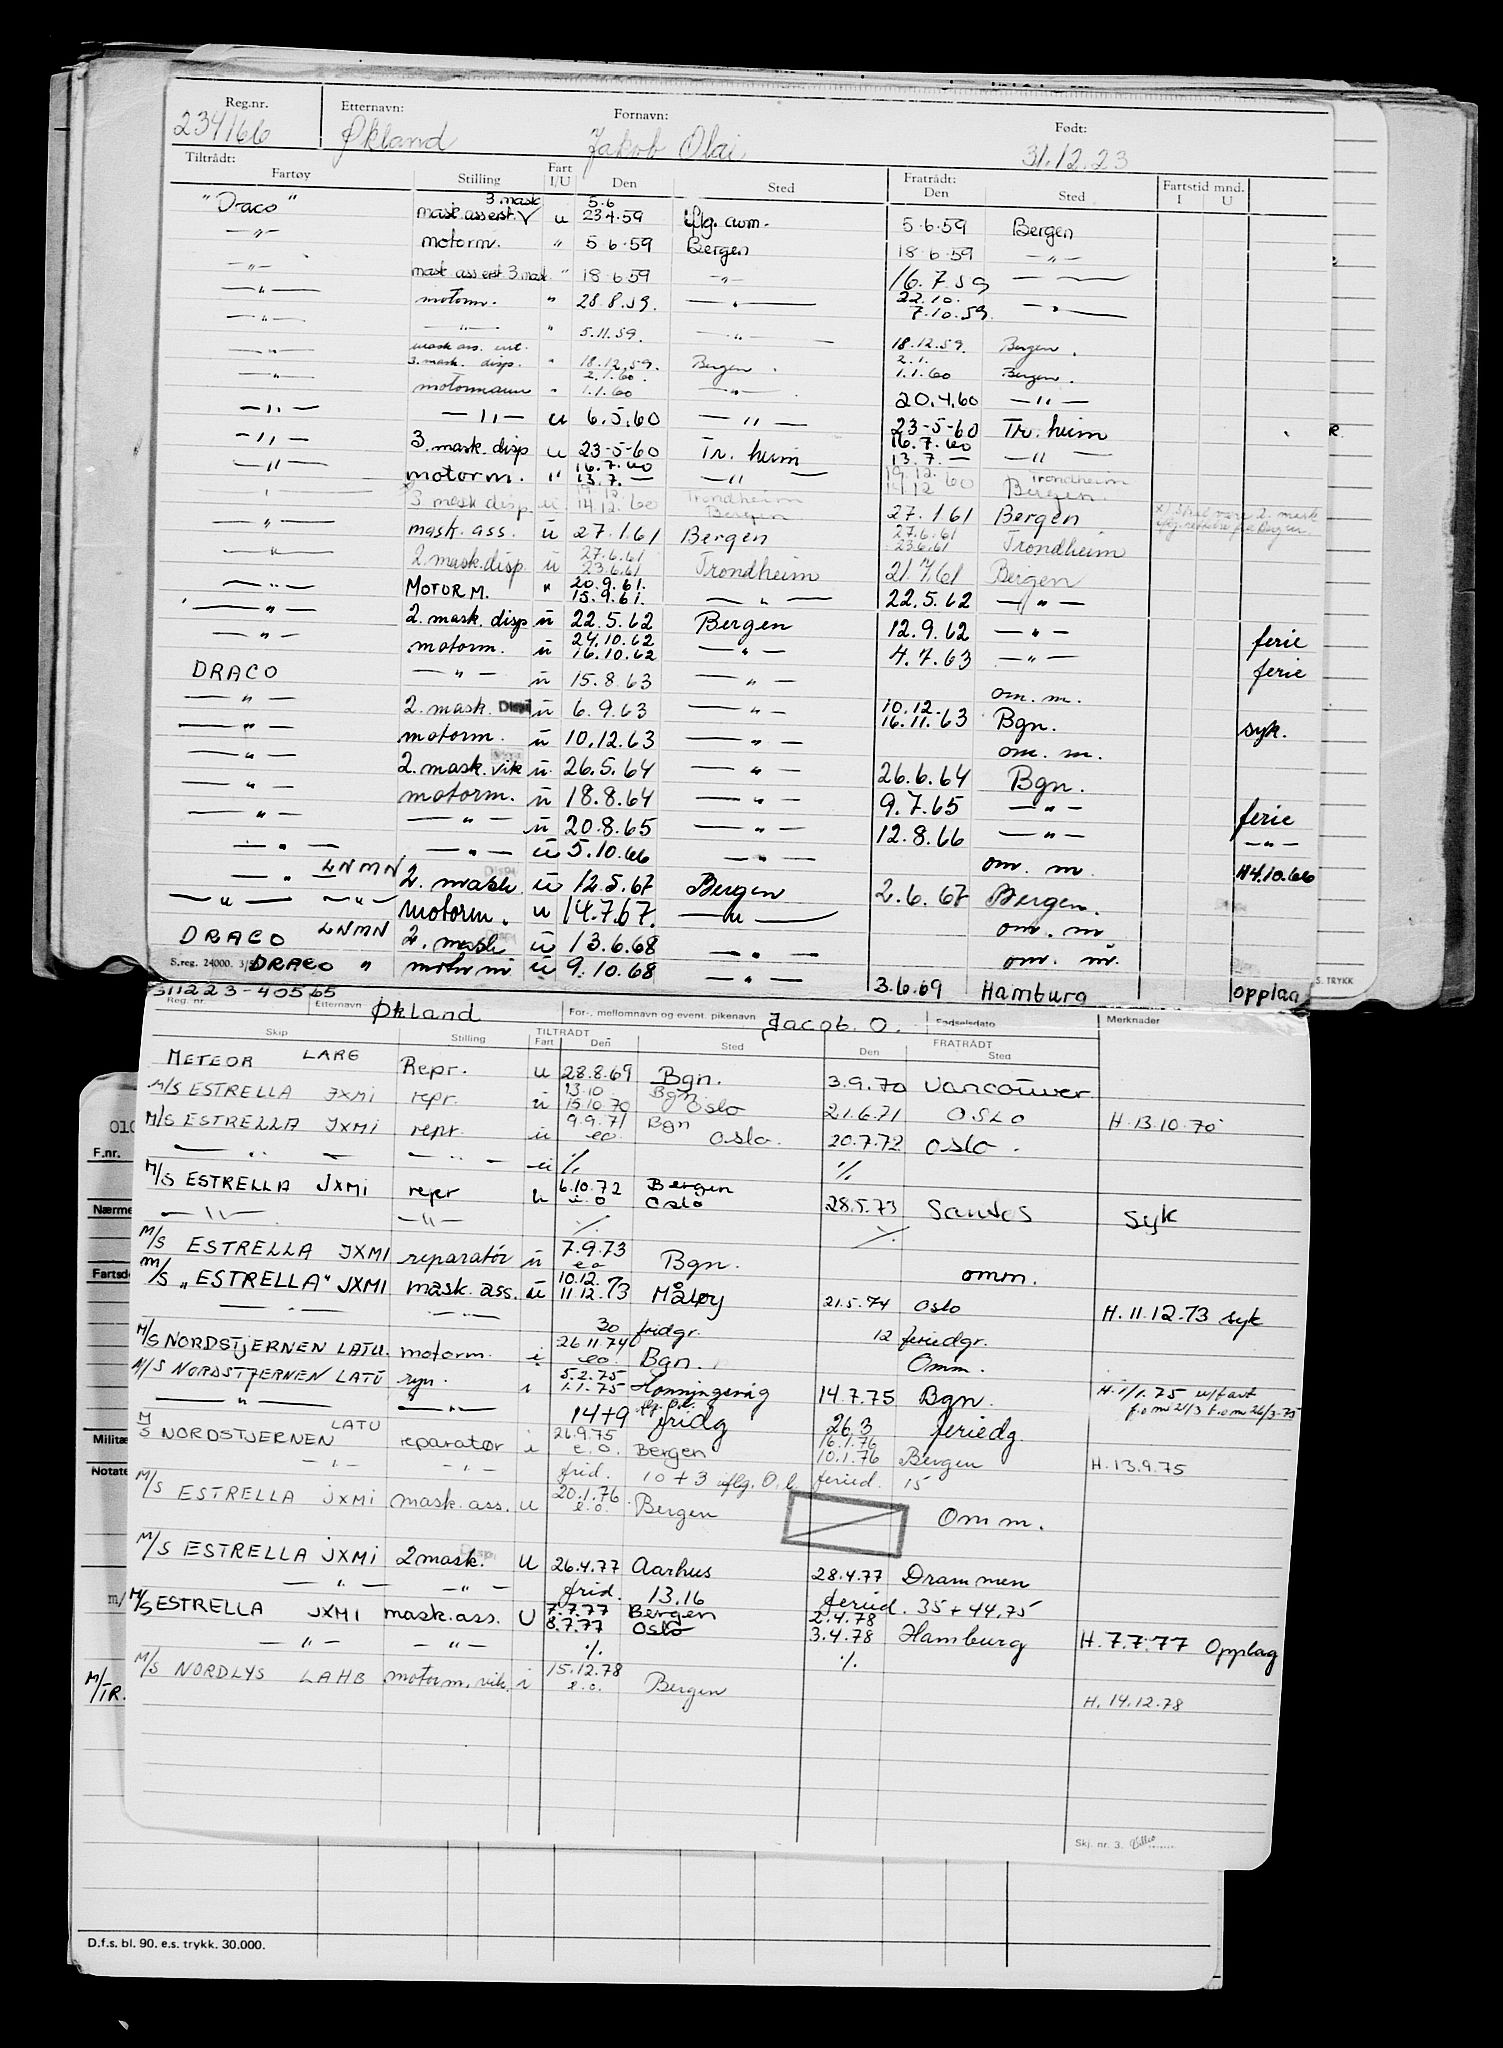 Reg.nr. Etternavn: Fornavn: Født:
234166 Økland Jakob Olai 31.12.23
Tiltrådt: Fratrådt: Fartstid mnd.
Fartøy Stilling Fart I/U Den Sted Den Sted I U
3. mask 5.6
"Draco" mask. ass erst. u 23 4.59 iflg. avm. 5.6.59 Bergen
—"— motorm. " 5 6.59 Bergen 18.6.59 —"—
—"— mask ass erst 3. mask " 18.6.59 —"— 16.7.59 —"—
22.10.
—"— motorm. " 28.8.59. —"— 7.10.59. —"—
—"— —"— " 5.11.59. —"— 18.12.59. Bergen.
mask ass. vik.
—"— 3. mask. disp. " 18.12.59. Bergen. 2.1.
2.1.60. 1.1.60 Bergen.
—"— motormann " 1.1.60 —"— 20.4.60 —"—
—"— —"— u 6.5.60 —"— 23-5-60 Tr. heim
16.7.60
—"— 3. mask. disp u 23-5-60 Tr. heim 13.7.— —"—
16.7.60 19.12. Trondheim
—"— motorm. " 13.7.— —"— 14.12 60 Bergen.
19.12. Trondheim
3 mask disp. u 14.12.60 Bergen 27.1 61 Bergen x) Skal være 2. mask
27.6.61
—"— mask. ass. u 27.1.61 Bergen 23.6.61 Trondheim
27.6.61
—"— 2. mask. disp u 23.6.61 Trondheim 21.7.61 Bergen
20.9.61.
—"— MOTOR M. " 15.9.61. —"— 22.5.62 —"—
—"— 2. mask. disp u 22.5.62 Bergen 12.9.62 —"— ferie
24.10.62
—"— motorm. u 16.10.62 —"— 4.7.63 —"— ferie
DRACO —"— u 15.8.63 —"— om. m.
10.12.
—"— 2. mask. Disp u 6.9.63 —"— 16.11.63 Bgn. syk.
—"— motorm. u 10.12.63 —"— om. m.
—"— 2. mask. vik u 26.5.64 —"— 26.6.64 Bgn.
—"— motorm. u 18.8.64 —"— 9.7.65 —"— ferie
—"— —"— u 20.8.65 —"— 12.8.66 —"— —"—
—"— —"— u 5.10.66 —"— om. m. H4.10.66
—"— LNMN 2. mask u 12.5.67 Bergen 2.6.67 Bergen.
—"— —"— motorm. u 14.7.67. —"— om. m
DRACO LNMN 2. mask u 13.6.68 —"— om. m.
S.reg. 24000. DRACO " motorm u 9.10.68 —"— 3.6.69 Hamburg opplag
S. TRYKK
311223-40565 Økland Jacob. O.
Reg. nr. Etternavn For-, mellomnavn og event. pikenavn Fødselsdato Merknader
TILTRÅDT FRATRÅDT
Skip Stilling Fart Den Sted Den Sted
METEOR LARG Repr. u 28.8.69 Bgn. 3.9.70 Vancouver
13.10 Bgn.
M/S ESTRELLA JXMI repr. u 15.10.70 Oslo 21.6.71 OSLO H. 13.10.70
9.9.71 Bgn
M/S ESTRELLA JXMI repr. u eo. Oslo. 20.7.72 Oslo.
—"— —"— u % %
6.10.72 Bergen
M/S ESTRELLA JXMI repr u e.o Oslo 28.5.73 Santos Syk
—"— —"— % %
M/S ESTRELLA JXMI reparatør u 7.9.73 e.o Bgn. omm.
10.12.
M/S "ESTRELLA" JXMI mask. ass. u 11.12.73 Måløy 21.5.74 Oslo H. 11.12.73 syk
—"— —"— 30 fridgr. 12 feriedgr.
M/S NORDSTJERNEN LATU motorm. i 26.11.74 eo. Bgn. Omm.
5.2.75
M/S NORDSTJERNEN LATU rep. i 1.1.75 Honningsvåg 14.7.75 Bgn. H. 1/1.75 u/fart
f.o.m 21/3 t.o.m 26/3-75
—"— —"— 14+9 fridg 26.3 feriedg.
26.9.75 16.1.76
M/S NORDSTJERNEN LATU reparatør i e.o. Bergen 10.1.76 Bergen H. 13.9.75
—"— —"— frid. 10+3 iflg. O.l. feried. 15
M/S ESTRELLA JXMI mask. ass. u 20.1.76 e.o. Bergen Omm.
M/S ESTRELLA JXMI 2 mask. u 26.4.77 Aarhus 28.4.77 Drammen
—"— —"— frid. 13.16 feried. 35+44.75
7.7.77 Bergen 2.4.78
M/S ESTRELLA JXMI mask. ass. U 8.7.77 Oslo 3.4.78 Hamburg H. 7.7.77 Opplag
—"— —"— % %
M/S NORDLYS LAHB motorm. vik. i 15.12.78 e.o. Bergen H. 14.12.78
Skj. nr. 3.
010
F.nr.
Nærme
Fartsde
Militæ
Notate
M/TR.
D.f.s. bl. 90. e.s. trykk. 30.000.